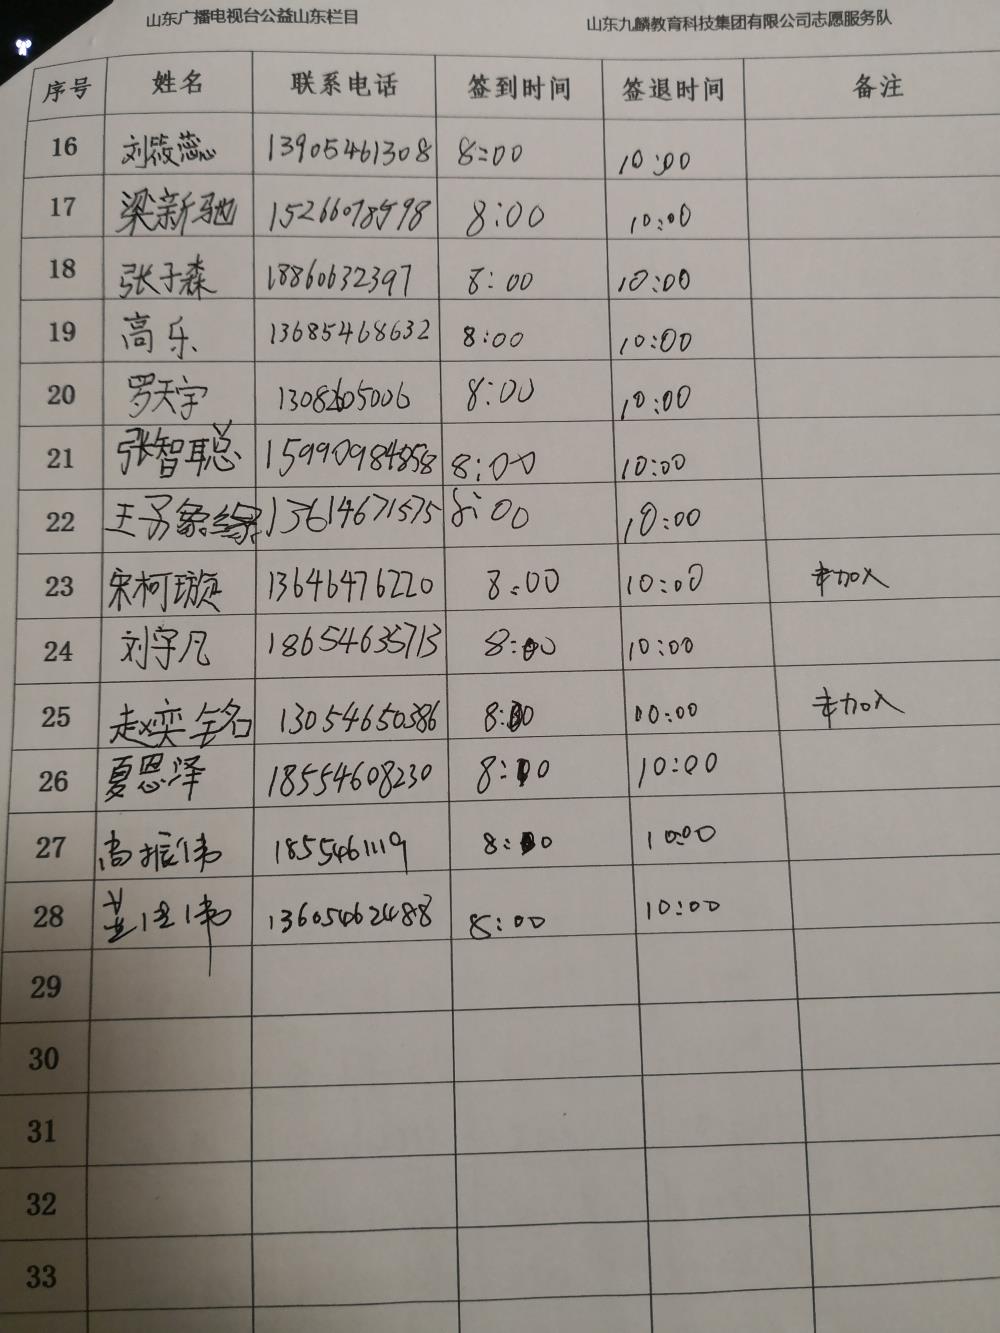 山东广播电视台公益山东栏目 山东九麟教育科技集团有限公司志愿服务队
序号 姓名 联系电话 签到时间 签退时间 备注
16 刘筱蕊 13905461308 8:00 10:00
17 梁新驰 15266078598 8:00 10:00
18 张子森 18860632397 8:00 10:00
19 高乐 13685468632 8:00 10:00
20 罗天宇 1308265006 8:00 10:00
21 张智聪 15990984858 8:00 10:00
22 王 13614671575 8:00 10:00
23 宋柯璇 13646476220 8:00 10:00 未加入
24 刘宇凡 18654635713 8:00 10:00
25 赵奕铭 13054650386 8:00 10:00 未加入
26 夏恩泽 18554608230 8:00 10:00
27 高振伟 1855461119 8:00 10:00
28 13605462488 8:00 10:00
29
30
31
32
33